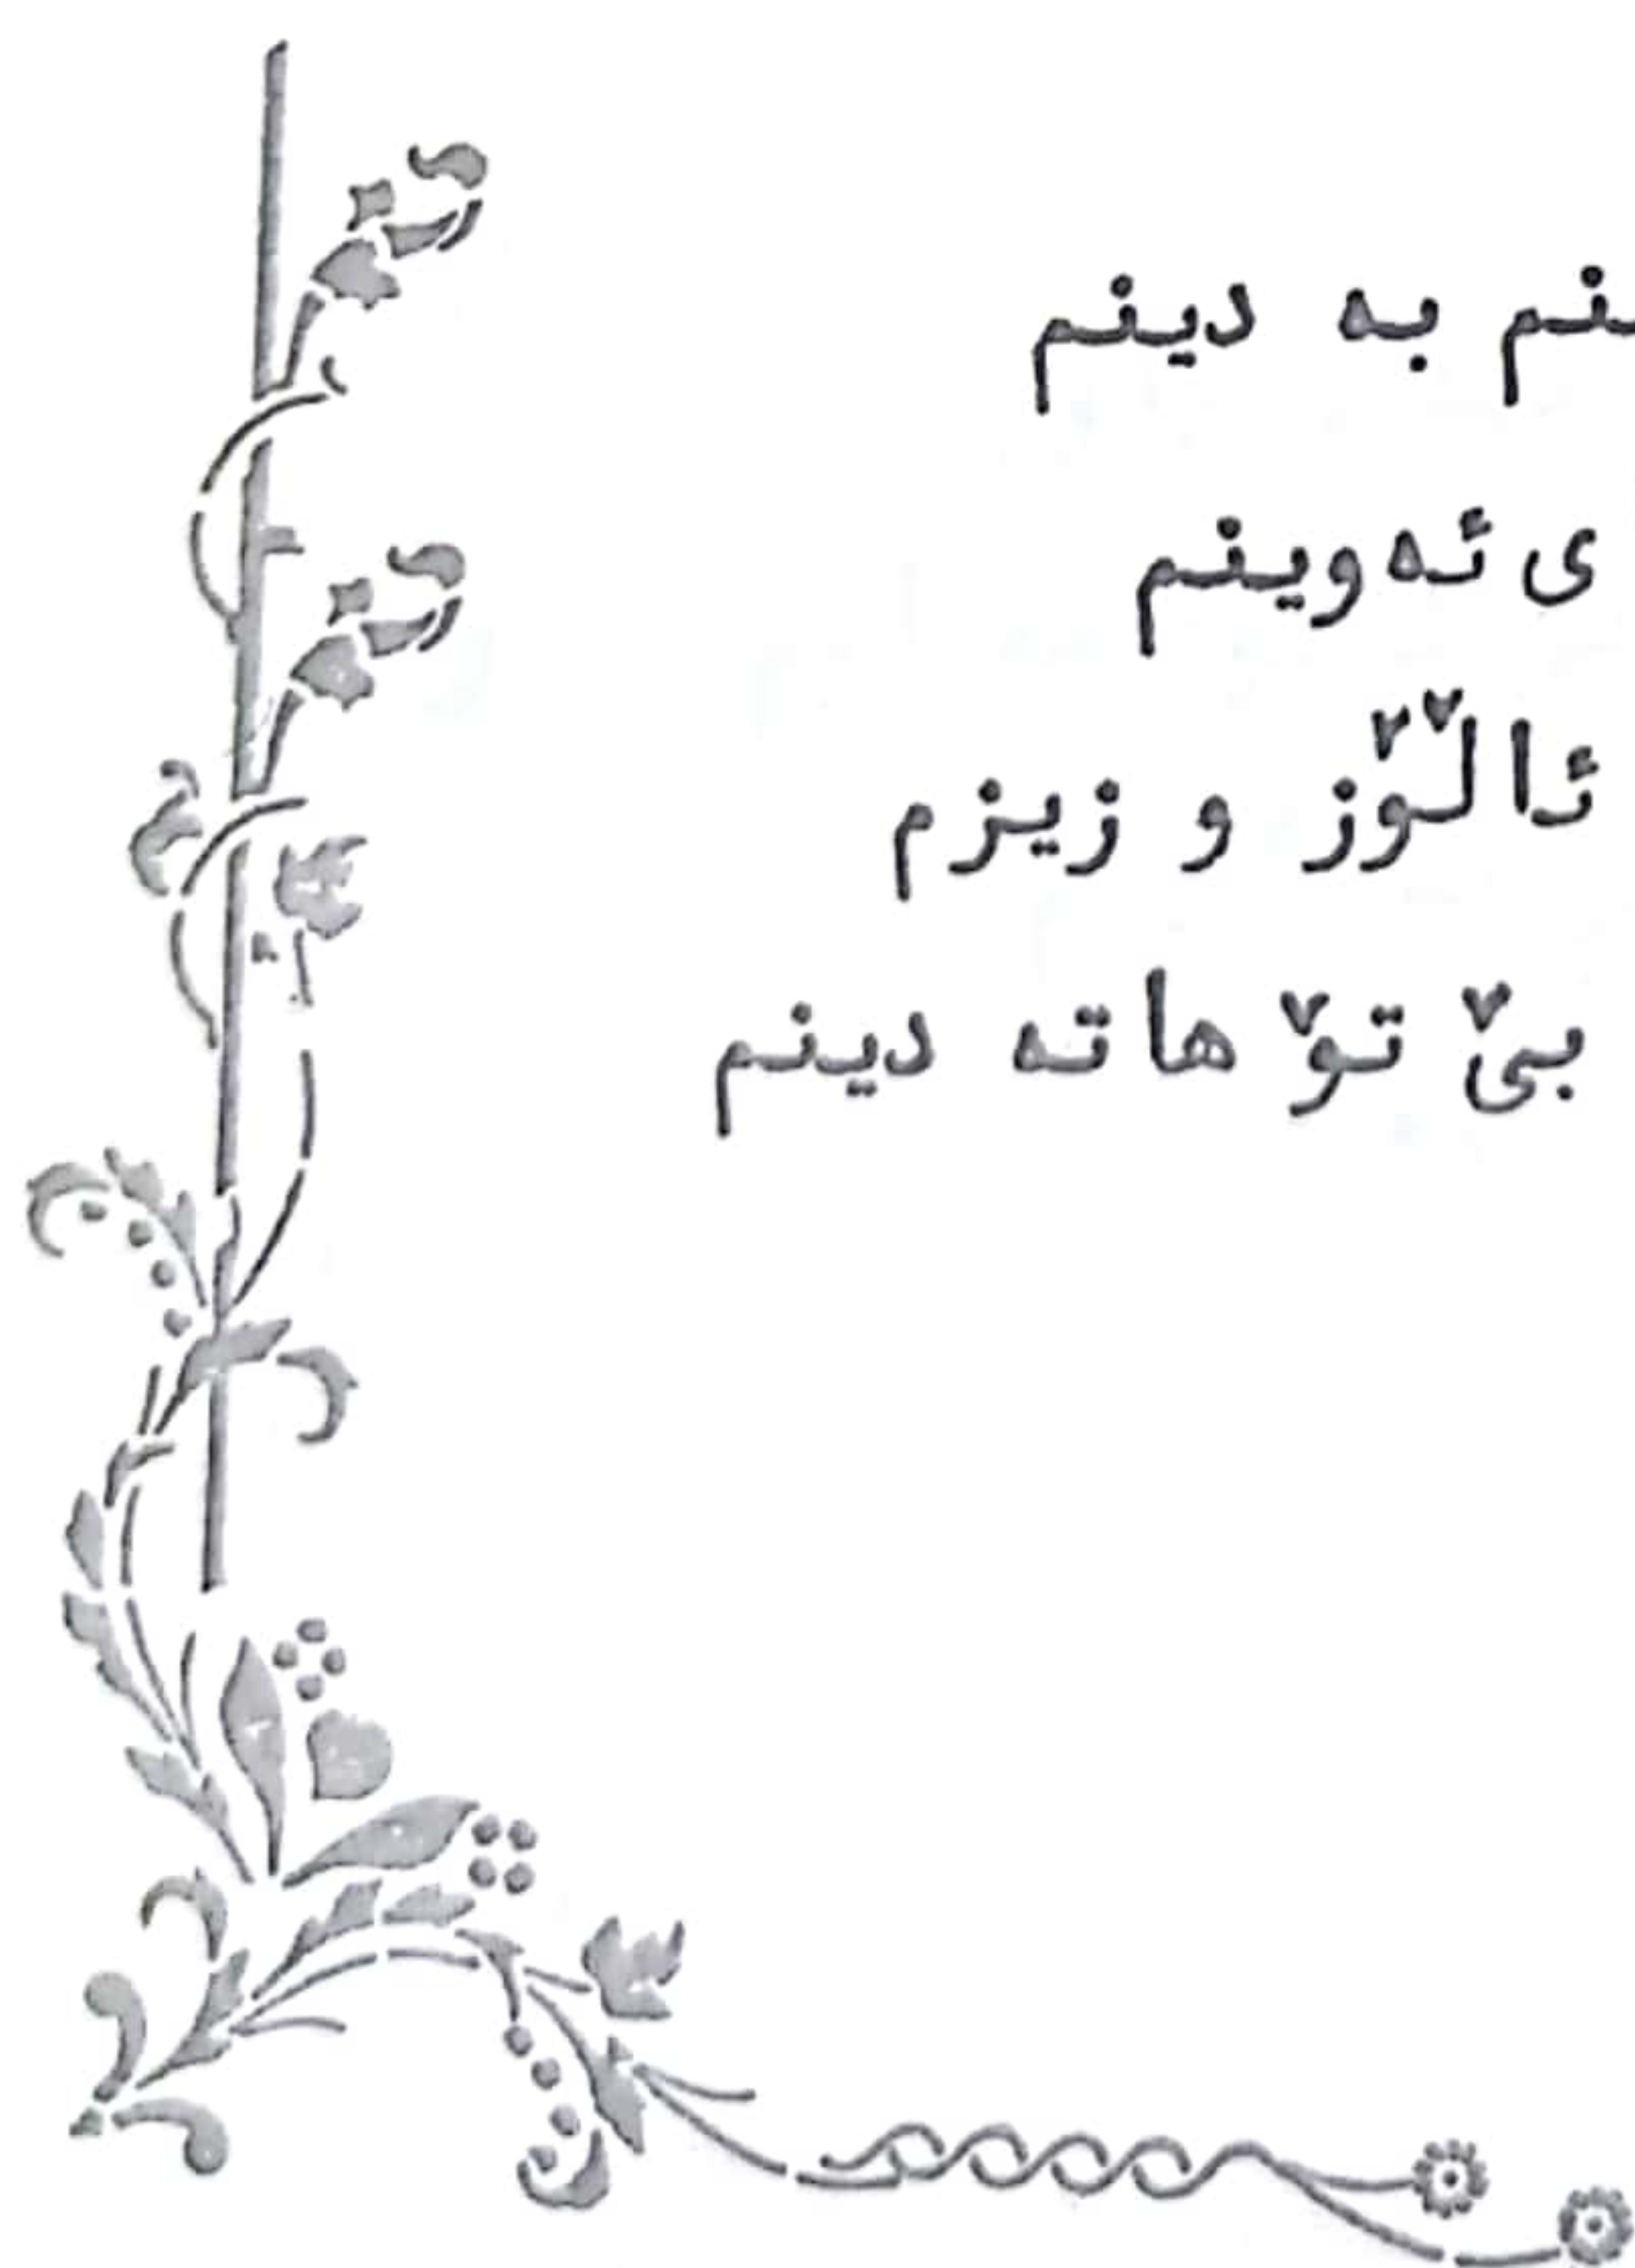 به دینم
ی ئەوینم
ئاڵۆز و زیزم
بێ تۆ هاتە دینم